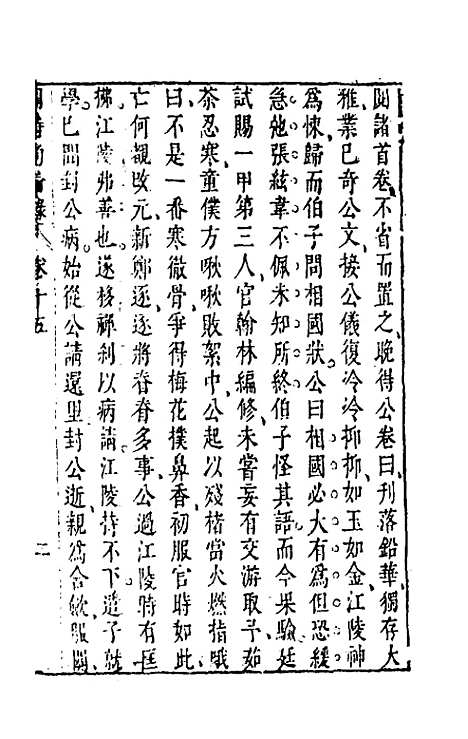 閱諸首卷不省而置之晚得公卷曰刋落鉛華獨存大
雅業已奇公文接公儀復冷冷抑抑如玉如金江陵神
爲悚歸而伯子問相國狀公曰相國必大有爲但恐緩
急弛張絃韋不佩未知所終伯子怪其語而今果驗廷
試賜一甲第三人官翰林編修未嘗妄有交游取予茹
茶忍寒童僕方啾啾敗絮中公起以殘楮當火燃指哦
曰不是一番寒徹骨爭得梅花撲鼻香初服官時如此
亡何覩改元新鄭逐逐將眘眘多事公過江陵時有匡
拂江陵弗善也遂移禪刹以病請江陵持不下遣子就
學已聞封公病始從公請還里封公逝親爲含歛服闋
卷十五
二